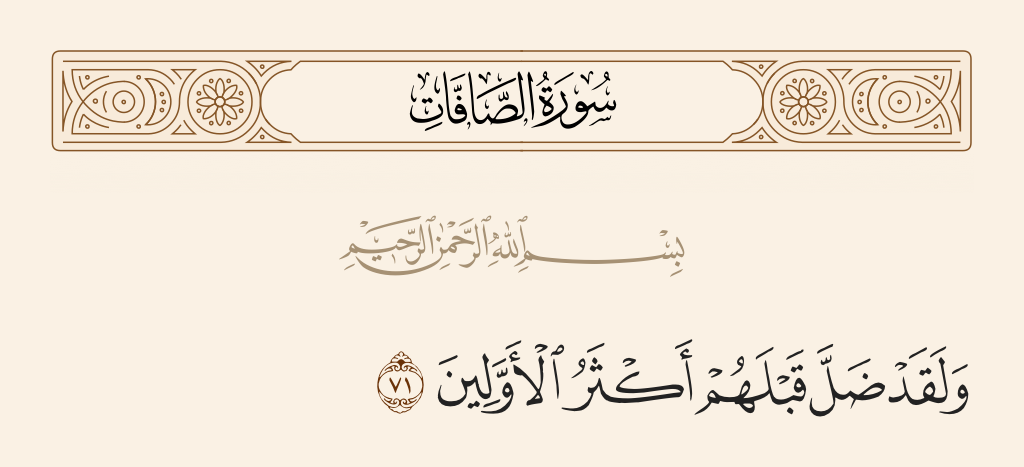 سُورَةُ الصَّافَّاتِ
بِسْمِ ٱللَّهِ ٱلرَّحْمَٰنِ ٱلرَّحِيمِ
وَلَقَدْ ضَلَّ قَبْلَهُمْ أَكْثَرُ ٱلْأَوَّلِينَ ٧١